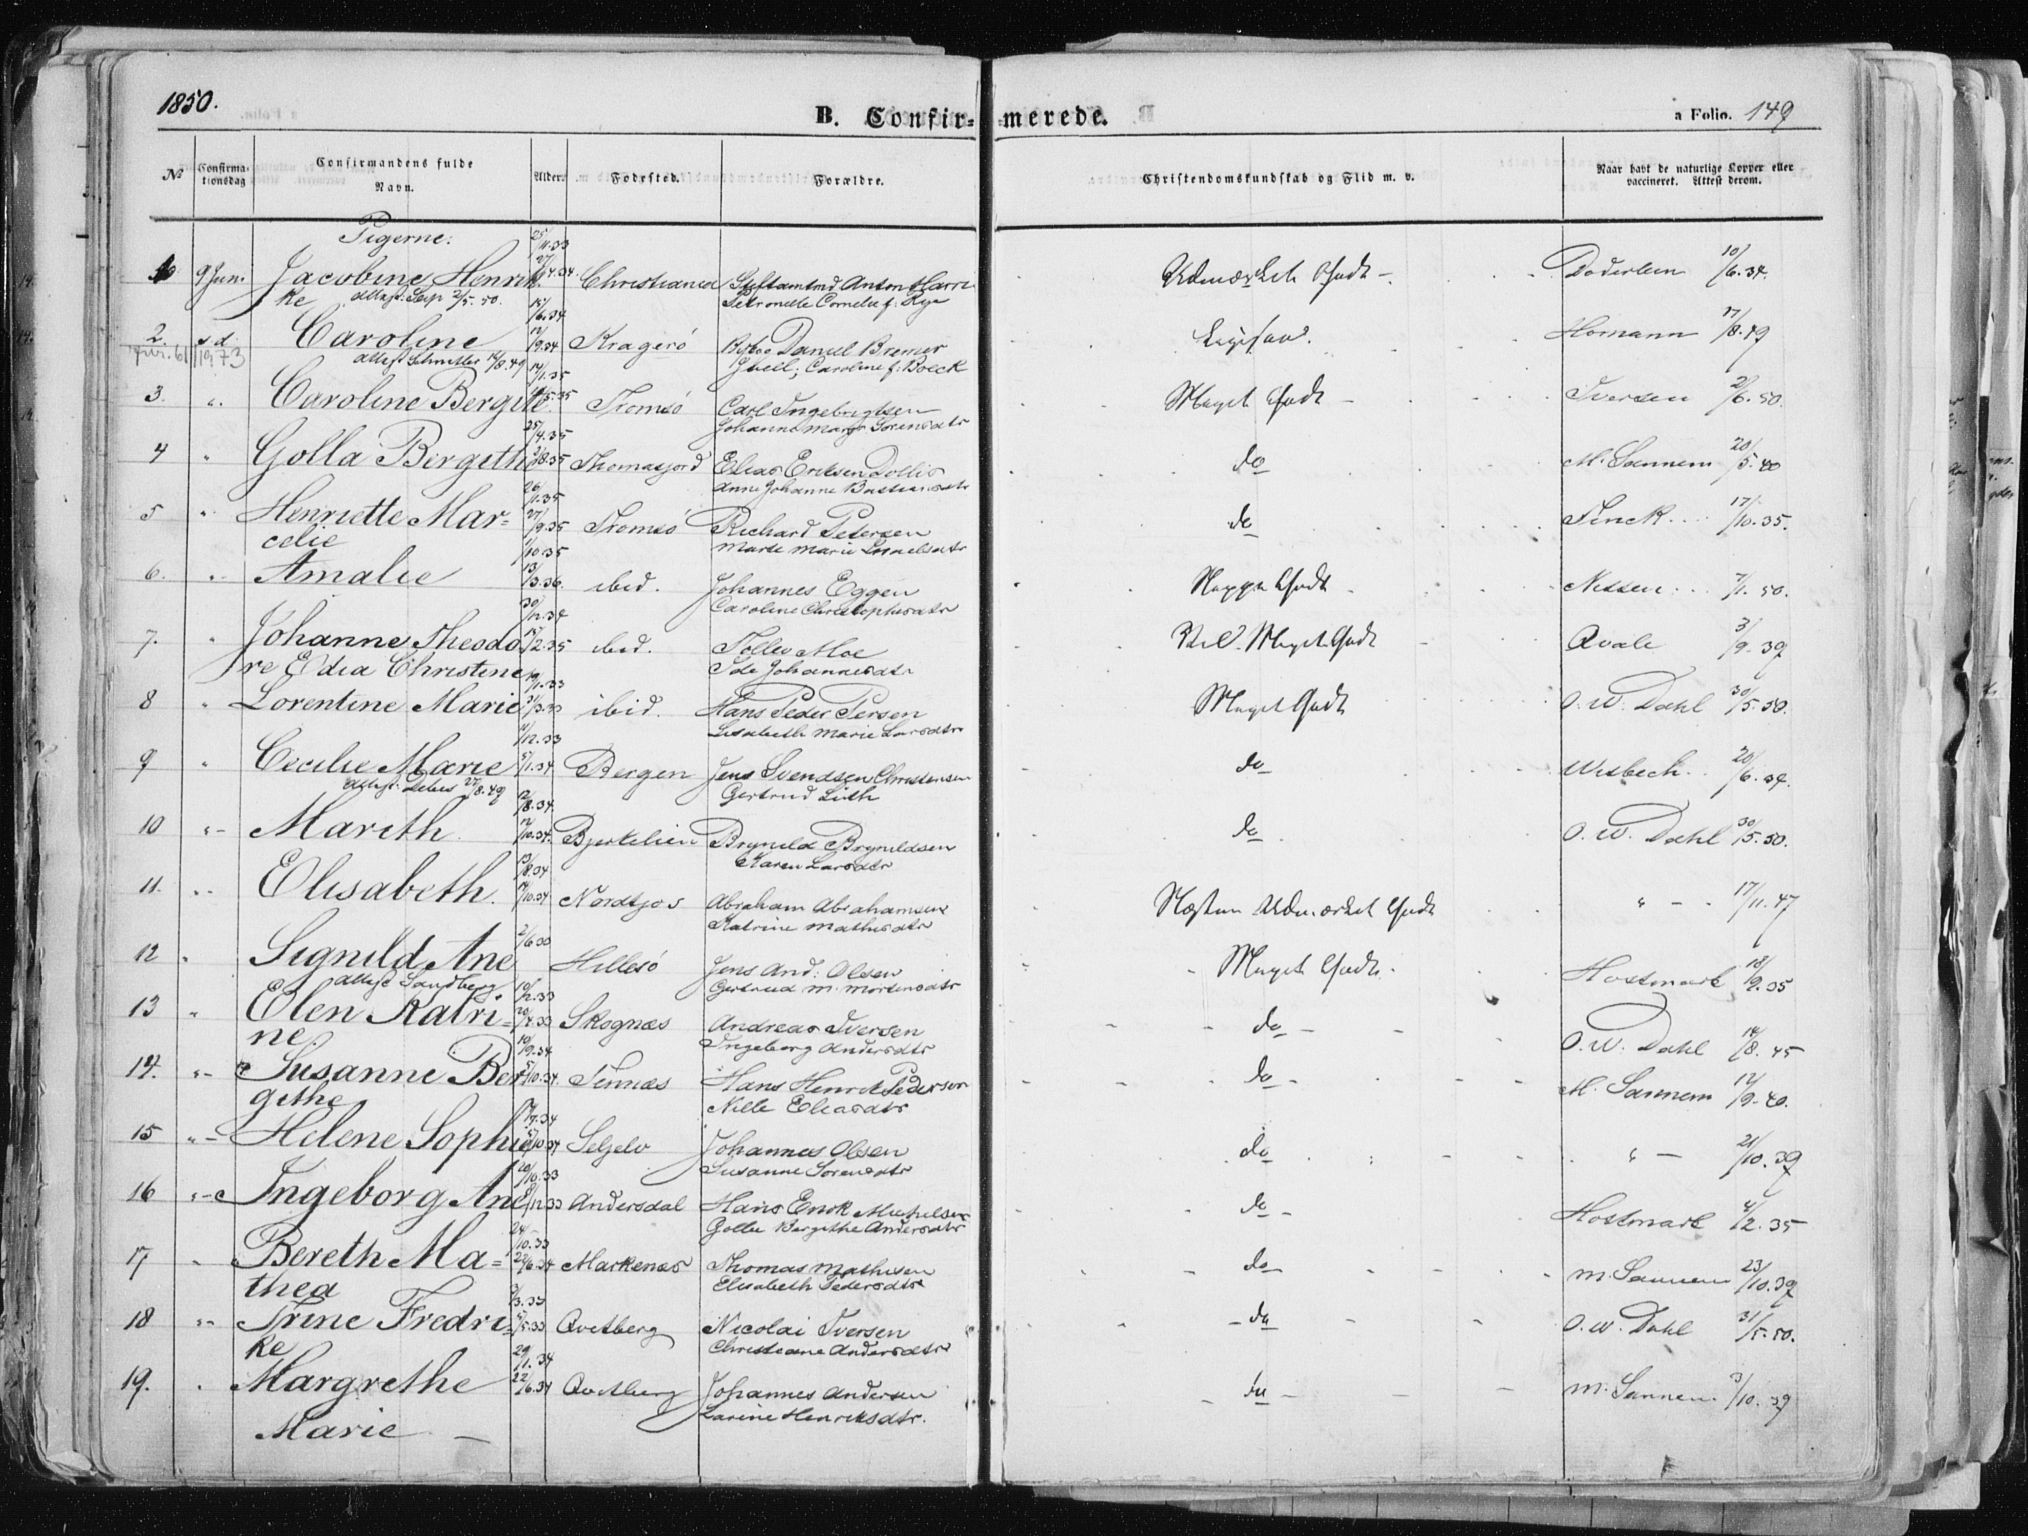 1850.
B. Confir- merede.
a Folio. 149
No
Confirmationsdag
Confirmandens fulde Navn.
Alder.
Fødested.
Forældre.
Christendomskundskab og Flid m. v.
Naar havt de naturlige Kopper eller vaccineret. Attest derom.
Pigerne: 25/11.33
9 Jun. Jacobine Henrik 27/4.34. Christiania Stiftamtmd Anton Harri Udmærket Godt - Døderlein 10/6.34.
ke attest: 2/5.50. 15/6.34 Petronelle Cornelia f: Rye
2. s d Caroline 12/9.34 Kragerö Daniel Bremer Homann 17/8.49
attest Schnitler 14/8.49 14/1.35 Caroline f: Boeck
3. " Caroline Bergite 5.35 Tromsö Carl Ingebrigtsen Meget Godt - Iversen 2/6.50.
25/4.35 Johanna Margr Sörensdtr
4 " Golla Bergithe 8.35 Thomasjord Elias Eriksen Dollis do M. Sannem 20/5.40
26/1.35 Anne Johanne Bastiansdtr
5 " Henriette Mar= 27/9.35 Tromsö Richard Petersen do Finck 17/10.35.
celie 1/10.35 Marte Marie Israelsdtr
6. " Amalie 13/3.36. ibid. Johannes Eggen Godt Nissen 7/1.50.
30/12.34 Caroline Christophersdtr
7. " Johanne Theodo 15/2.35 ibid. Tollev Moe Meget Godt Qvale 3/9.39
re Edia Christine 19/1.33 Ide Johannesdtr
8 " Lorentine Marie 31/3.33 ibid. Hans Peder Persen Meget Godt O. W. Dahl 30/5.50.
11/12.33 Lisabeth Marie Larsdtr
9 " Cecilie Marie 5/1.34 Bergen Jens Svendsen Christensen do Wisbech 20/6.34.
attest: 27/8.49 12/8.34. Gertrud Lüth
10 " Marith 12/10.34. Bjerkelien Brynild Brynildsen do O. W. Dahl 30/5.50.
13/8.34 Karen Larsdtr
11. " Elisabeth. 14/10.34 Nordfjos Abraham Abrahamsen Næsten Udmærket Godt " 17/11.47
2/6.30 Katrine Mathisdtr
12 " Signild Ane Hillesö Jens And: Olsen Meget Godt. Hostmark 18/9.35
attest Sandberg 10/2.33 Gertrud M. Mortensdtr
13 " Elen Katri= 20/4.33 Skognæs Andreas Iversen do O. W. Dahl 14/8.45
ne. 10/9.34 Ingeborg Andersdtr
14. " Susanne Ber 5/10.34 Tennæs Hans Henrik Pedersen do M. Sannem 12/9.40.
gethe 9.34 Nille Eliasdtr
15 " Helene Sophie 10.34 Seljelv Johannes Olsen do " 21/10.39
10/10.33 Susanne Sörensdtr
16 " Ingeborg Ane 12.33 Andersdal Hans Enok Michelsen do Hostmark 4/2.35
24/10.33 Golla Bergithe Andersdtr
17 " Bereth Ma= 22/6.34 Markenæs Thomas Mathisen do M. Sannem 23/10.39
thea 2/3.33 Elisabeth Pedersdtr
18 " Trine Fredri= 5/5.33 Qvetberg Nicolai Iversen do O. W. Dahl 31/5.50.
ke 29/1.34 Christiane Andersdtr
19. " Margrethe 22/6.34 Qvetberg Johannes Andersen do M. Sannem 3/10.39
Marie Larine Henriksdtr.